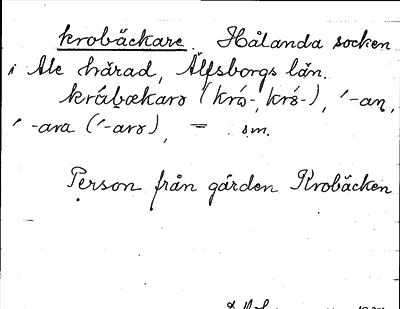 krobäckare. Hålanda socken
i Ale härad, Älfsborgs län.
kråbækarə (krå-, krə́-), ´-aṇ,
´-ara (´-arə), = sm.
Person från gården Krobäcken